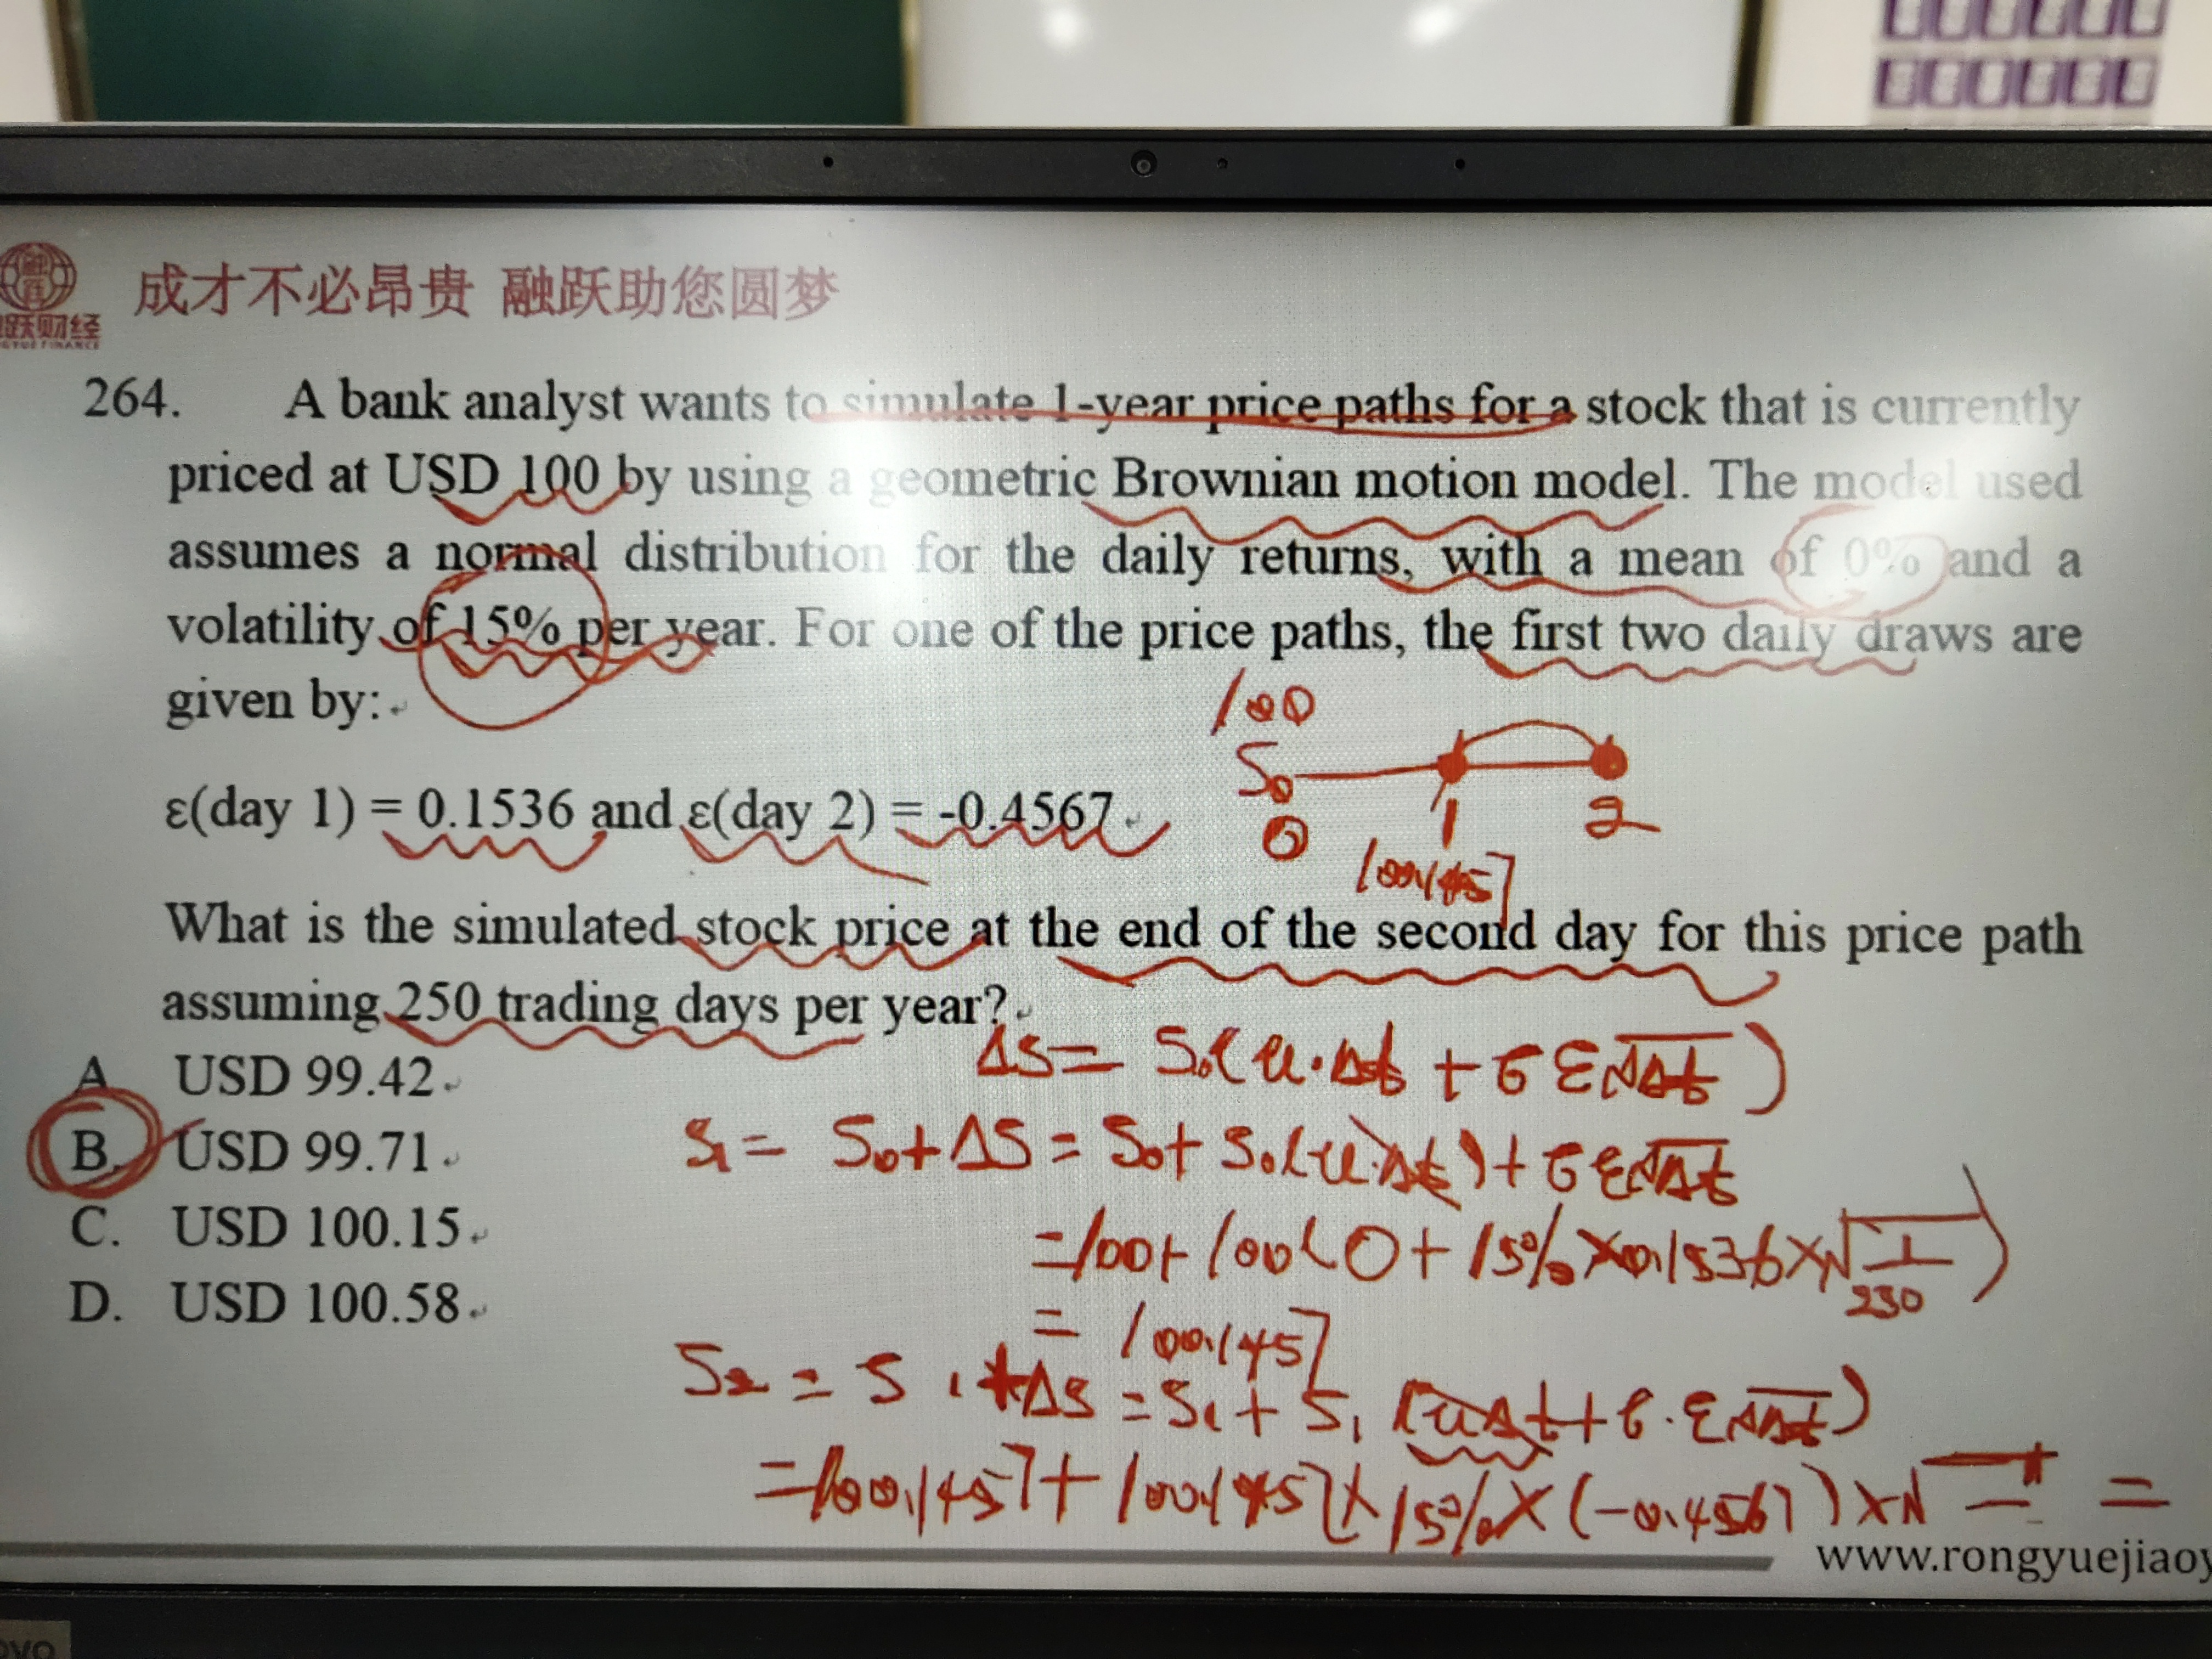 成才不必昂贵 融跃助您圆梦
跃财经
264. A bank analyst wants to simulate 1-year price paths for a stock that is currently
priced at USD 100 by using a geometric Brownian motion model. The model used
assumes a normal distribution for the daily returns, with a mean of 0% and a
volatility of 15% per year. For one of the price paths, the first two daily draws are
given by:
100
S₀
ε(day 1) = 0.1536 and ε(day 2) = -0.4567
0 1 2
100.1457
What is the simulated stock price at the end of the second day for this price path
assuming 250 trading days per year?
ΔS = S₀(u·Δt + σε√Δt)
A. USD 99.42
B. USD 99.71
S₁ = S₀+ΔS = S₀+S₀(u·Δt)+σε√Δt
C. USD 100.15
=100+100(0+15%×0.1536×√1/250)
D. USD 100.58
= 100.1457
S₂ = S₁+ΔS = S₁+S₁(uΔt+σ·ε√Δt)
=100.1457+100.1457×15%×(-0.4567)×√ =
www.rongyuejiaoy